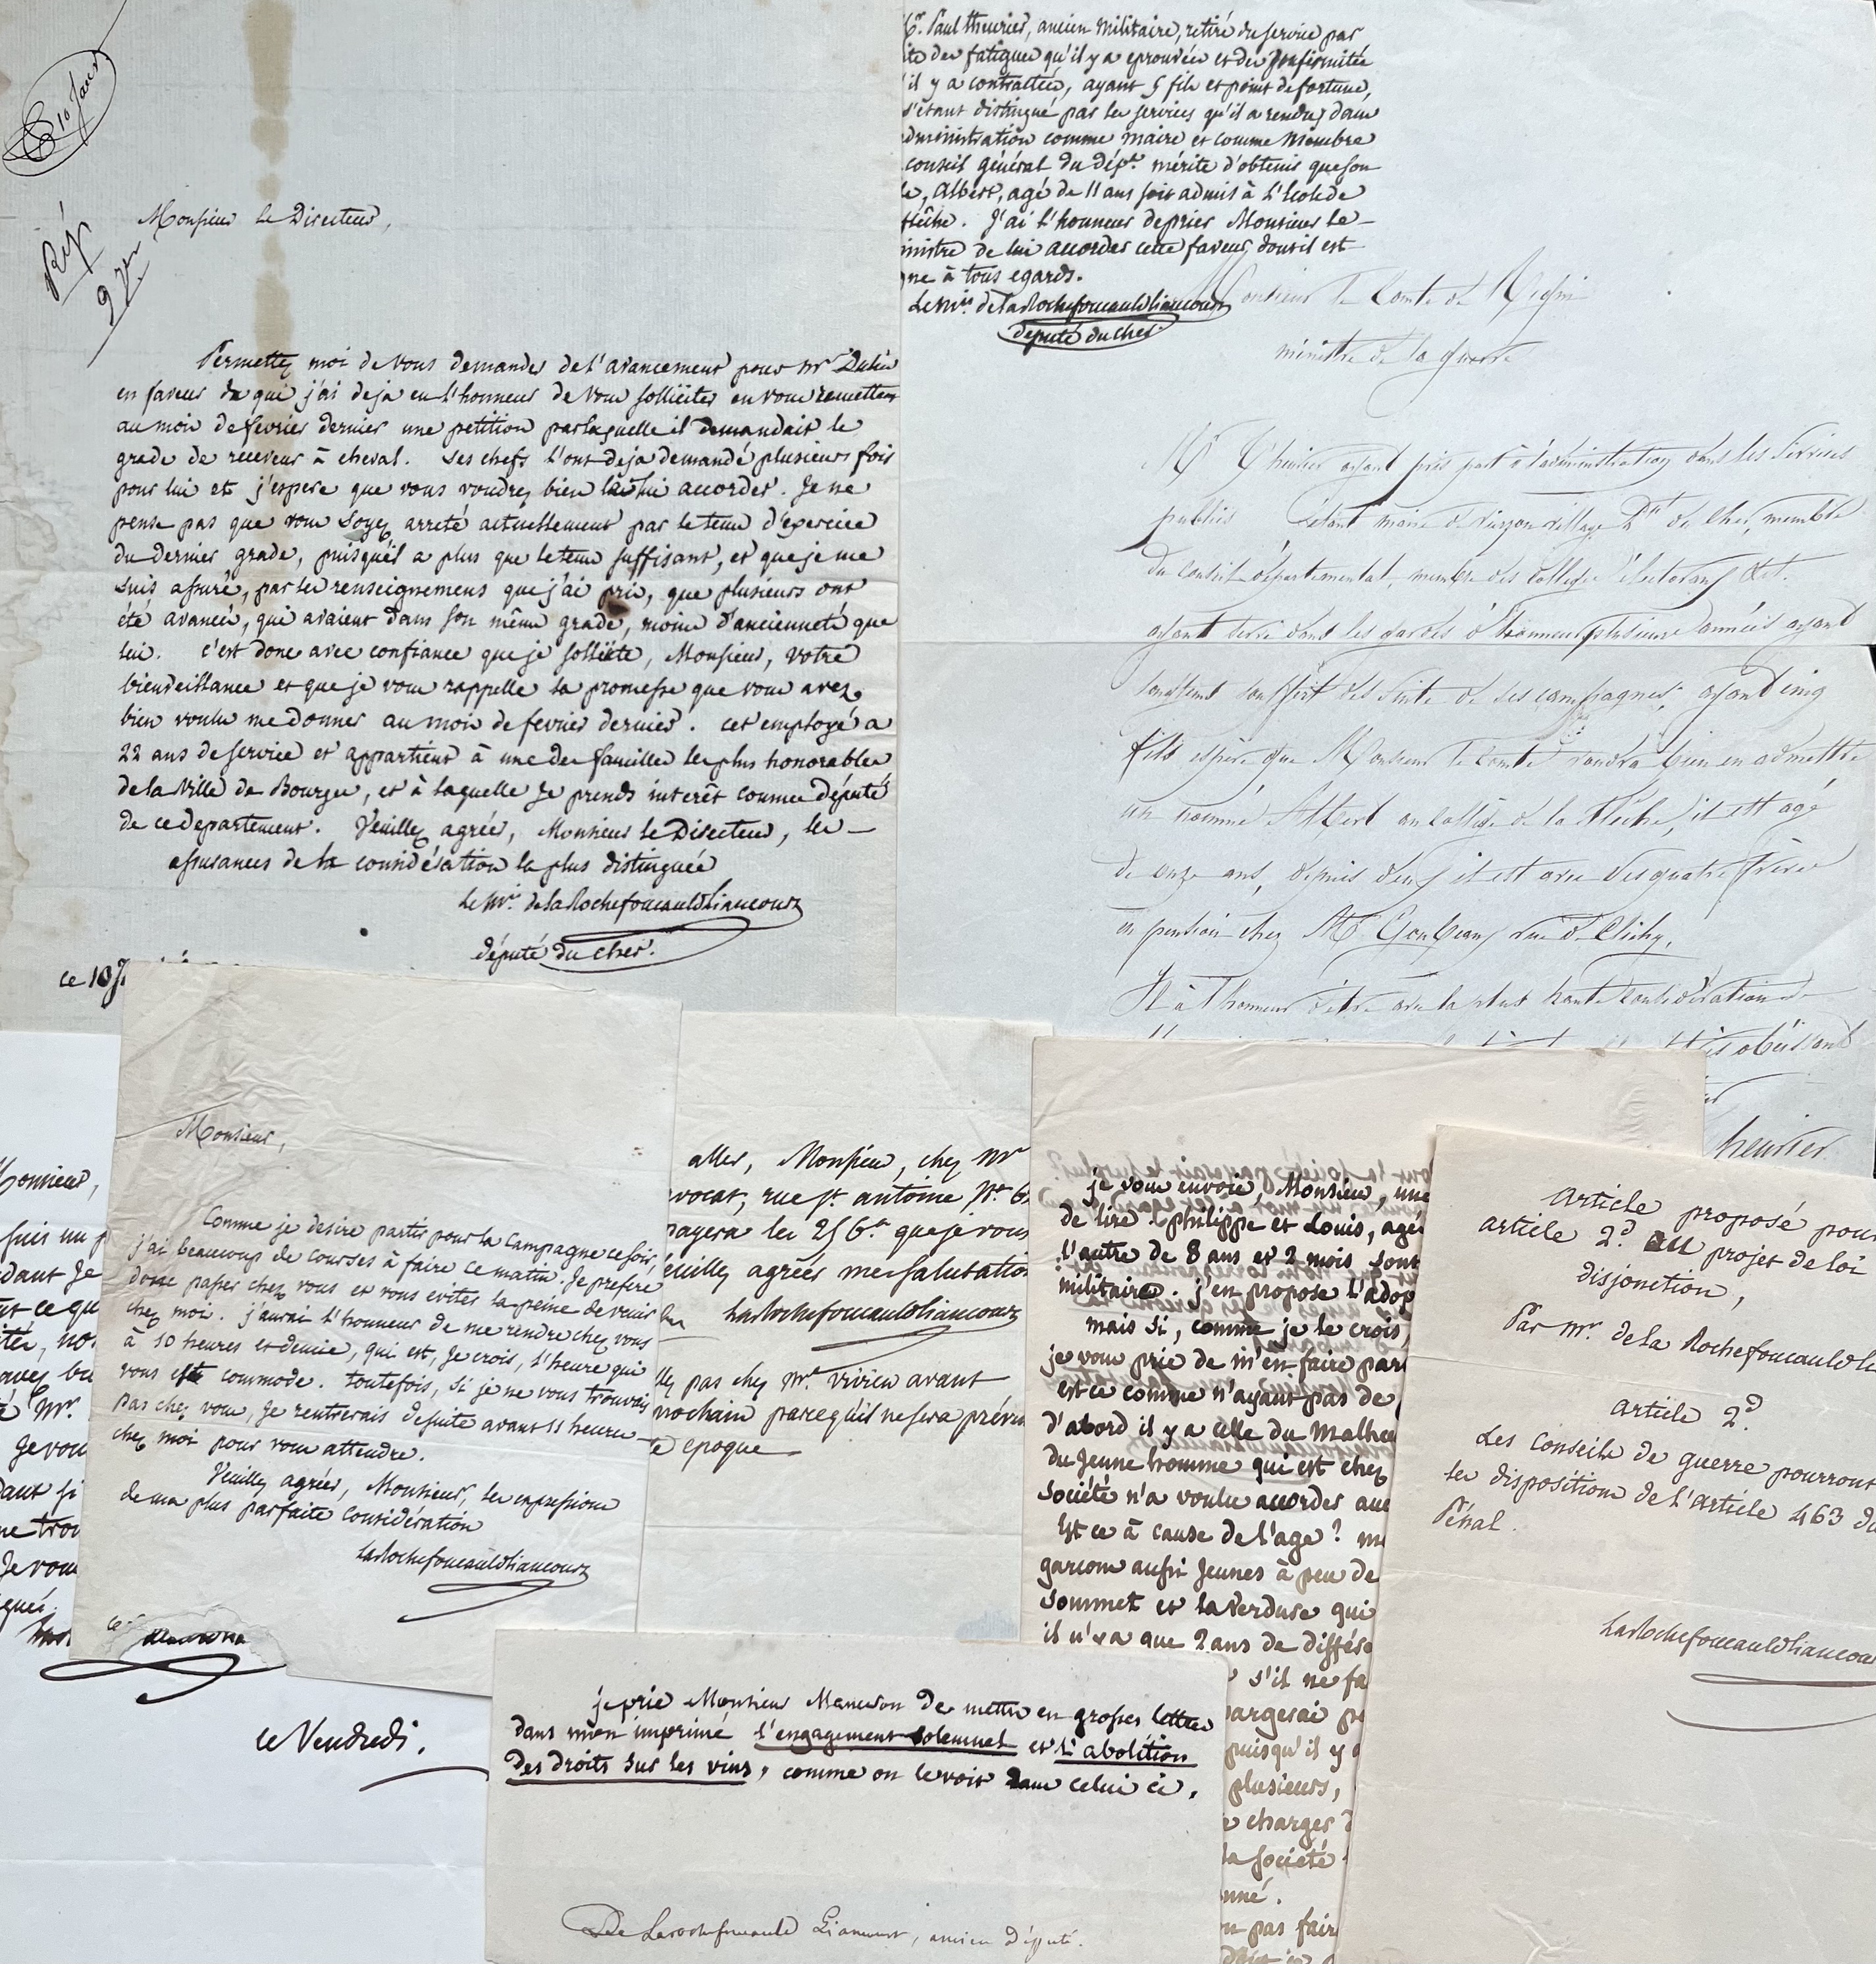 10 Janv
Rép
9 Jer
Monsieur le Directeur,
Permettez moi de vous demander de l'avancement pour mr Dubin
en faveur de qui j'ai deja eu l'honneur de vous solliciter en vous remettant
au mois de fevrier dernier une petition par laquelle il demandait le
grade de receveur à cheval. Ses chefs l'ont deja demandé plusieurs fois
pour lui et j'espere que vous voudrez bien le lui accorder. Je ne
pense pas que vous soyez arreté actuellement par le tems d'exercice
du dernier grade, puisqu'il a plus que le tems suffisant, et que je me
suis assuré, par les renseignemens que j'ai pris, que plusieurs ont
été avancés, qui avaient dans son même grade, moins d'ancienneté que
lui. C'est donc avec confiance que je sollicite, Monsieur, votre
bienveillance et que je vous rappelle la promesse que vous avez
bien voulu me donner au mois de fevrier dernier. cet employé a
22 ans de service et appartient à une des familles les plus honorables
de la ville de Bourges, et à laquelle je prends interêt comme député
de ce departement. Veuillez agréer, Monsieur le Directeur, les
assurances de la considération la plus distinguée
Le Mis de la Rochefoucauld Liancourt
député du cher.
ce 10 J
Sr. Paul theurier, ancien militaire, retiré du service par
ite des fatigues qu'il y a eprouvées et des infirmités
'il y a contractées, ayant 5 fils et point de fortune,
s'étant distingué par les services qu'il a rendus dans
dministration comme maire et comme membre
conseil général du dépt. mérite d'obtenir que son
s, Albert, agé de 11 ans soit admis à l'école de
flêche. J'ai l'honneur de prier Monsieur le
inistre de lui accorder cette faveur dont il est
ne à tous egards.
Le Mis de la Rochefoucauld Liancourt
député du cher
Monsieur le Comte de
ministre de la guerre
Mr Theurier ayant pris part à l'administration dans les services
publics étant maire de vierzon village Dt du Cher, membre
du conseil départemental, membre des colleges électoraux &t.
ayant servi dans les gardes d'honneur plusieurs années ayant
souffert des suite de ses campagnes, ayant cinq
fils espère que Monsieur le comte voudra bien en admettre
un nommé Albert au collège de la flèche, il est agé
de onze ans, depuis deux il est avec des quatre frère
en pension chez Mr Goubeaux rue de Clichy.
Il à l'honneur d'être avec la plus haute considération
très obéissant
heurier
Monsieur,
suis un p
dant je
et ce qu
ité, no
avez bu
Mr.
je vou
dant si
ne trou
je vou
gués.
le Vendredi.
Monsieur,
Comme je desire partir pour la campagne ce soir,
j'ai beaucoup de courses à faire ce matin. Je prefere
donc passer chez vous et vous eviter la peine de venir
chez moi. j'aurai l'honneur de me rendre chez vous
à 10 heures et demie, qui est, je crois, l'heure qui
vous est commode. toutefois, si je ne vous trouvais
pas chez vous, je rentrerais de suite avant 11 heures
chez moi pour vous attendre.
Veuillez agréer, Monsieur, les expressions
de ma plus parfaite considération
LaRochefoucauld Liancourt
ce
aller, Monsieur, chez mr
vocat, rue st. antoine No 6
payera les 25 fr que je vous
euillez agréer mes salutation
LaRochefoucauld Liancourt
llez pas chez mr. vivien avant
prochain parcequ'il ne sera préven
e epoque
je vous envoie, Monsieur, une
de lire. philippe et Louis, agés
l'autre de 8 ans et 2 mois sont
militaire. j'en propose l'adop
mais si, comme je le crois,
je vous prie de m'en faire par
est ce comme n'ayant pas de
d'abord il y a celle du Malheu
du jeune homme qui est chez
société n'a voulu accorder auc
Est ce à cause de l'age? m
garcons aussi jeunes à peu de
Sommet et laVerdure qui
il n'y a que 2 ans de différe
s'il ne fa
argerai p
puisqu'il y
plusieurs,
charger
la société
nné.
pas fair
article proposé pour
article 2d au projet de loi
disjonction,
Par mr. de la Rochefoucauld L
article 2d
Les conseils de guerre pourront
les dispositions de l'article 463 du
Pénal.
LaRochefoucauld Liancour
je prie Monsieur Manceron de mettre en grosses lettres
dans mon imprimé l'engagement solemnel et l'abolition
des droits sur les vins, comme on le voit dans celui ci.
De Larochefoucauld Liancourt, ancien député.